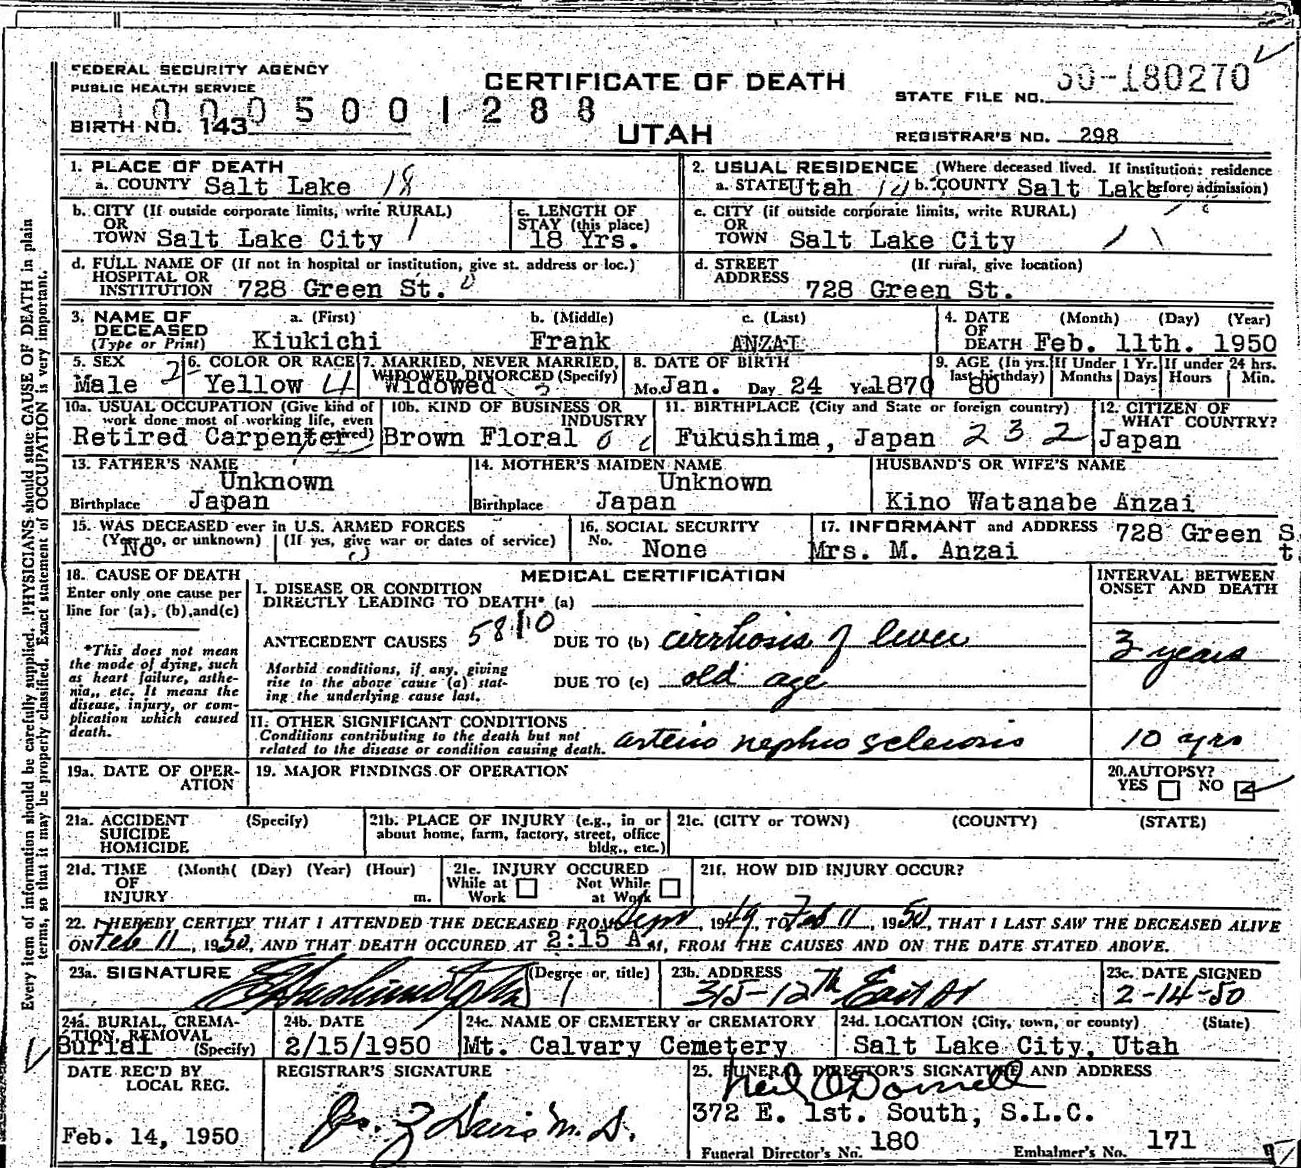 FEDERAL SECURITY AGENCY
PUBLIC HEALTH SERVICE
CERTIFICATE OF DEATH
STATE FILE NO. 50-180270
10005001288
BIRTH NO. 143
UTAH
REGISTRAR'S NO. 298
1. PLACE OF DEATH
a. COUNTY Salt Lake 18
2. USUAL RESIDENCE (Where deceased lived. If institution: residence before admission)
a. STATE Utah b. COUNTY Salt Lake
b. CITY (If outside corporate limits, write RURAL)
OR
TOWN Salt Lake City 1
c. LENGTH OF
STAY (this place)
18 Yrs.
c. CITY (if outside corporate limits, write RURAL)
OR
TOWN Salt Lake City
d. FULL NAME OF (If not in hospital or institution, give st. address or loc.)
HOSPITAL OR
INSTITUTION 728 Green St.
d. STREET (If rural, give location)
ADDRESS 728 Green St.
3. NAME OF DECEASED
(Type or Print)
a. (First) b. (Middle) c. (Last)
Kiukichi Frank ANZAI
4. DATE OF DEATH (Month) (Day) (Year)
Feb. 11th. 1950
5. SEX
Male 2
6. COLOR OR RACE
Yellow 4
7. MARRIED, NEVER MARRIED,
WIDOWED DIVORCED (Specify)
Widowed
8. DATE OF BIRTH
Mo. Jan. Day 24 Year 1870
9. AGE (In yrs. last birthday) If Under 1 Yr. If under 24 hrs.
80 Months Days Hours Min.
10a. USUAL OCCUPATION (Give kind of
work done most of working life, even
if retired)
Retired Carpenter
10b. KIND OF BUSINESS OR
INDUSTRY
Brown Floral
11. BIRTHPLACE (City and State or foreign country)
Fukushima, Japan 232
12. CITIZEN OF
WHAT COUNTRY?
Japan
13. FATHER'S NAME
Unknown
Birthplace Japan
14. MOTHER'S MAIDEN NAME
Unknown
Birthplace Japan
HUSBAND'S OR WIFE'S NAME
Kino Watanabe Anzai
15. WAS DECEASED ever in U.S. ARMED FORCES
(Yes, no, or unknown) (If yes, give war or dates of service)
No
16. SOCIAL SECURITY
No. None
17. INFORMANT and ADDRESS 728 Green St.
Mrs. M. Anzai
18. CAUSE OF DEATH
Enter only one cause per
line for (a), (b), and (c)
*This does not mean
the mode of dying, such
as heart failure, asthe-
nia, etc. It means the
disease, injury, or com-
plication which caused
death.
MEDICAL CERTIFICATION
I. DISEASE OR CONDITION
DIRECTLY LEADING TO DEATH* (a)
ANTECEDENT CAUSES 58110 DUE TO (b) cirrhosis of liver
Morbid conditions, if any, giving
rise to the above cause (a) stat-
ing the underlying cause last.
DUE TO (c) old age
INTERVAL BETWEEN
ONSET AND DEATH
3 years
II. OTHER SIGNIFICANT CONDITIONS
Conditions contributing to the death but not
related to the disease or condition causing death. arterio nephro sclerosis
10 yrs
19a. DATE OF OPER-
ATION
19. MAJOR FINDINGS OF OPERATION
20. AUTOPSY?
YES NO
21a. ACCIDENT (Specify)
SUICIDE
HOMICIDE
21b. PLACE OF INJURY (e.g., in or
about home, farm, factory, street, office
bldg., etc.)
21c. (CITY or TOWN) (COUNTY) (STATE)
21d. TIME (Month( (Day) (Year) (Hour)
OF
INJURY m.
21e. INJURY OCCURED
While at Work Not While at Work
21f. HOW DID INJURY OCCUR?
22. I HEREBY CERTIFY THAT I ATTENDED THE DECEASED FROM Sept, 1949, TO Feb 11, 1950, THAT I LAST SAW THE DECEASED ALIVE
ON Feb 11, 1950, AND THAT DEATH OCCURED AT 2:15 A M, FROM THE CAUSES AND ON THE DATE STATED ABOVE.
23a. SIGNATURE (Degree or title)
23b. ADDRESS
315-12th East St
23c. DATE SIGNED
2-14-50
24a. BURIAL, CREMA-
TION, REMOVAL
Burial (Specify)
24b. DATE
2/15/1950
24c. NAME OF CEMETERY or CREMATORY
Mt. Calvary Cemetery
24d. LOCATION (City, town, or county) (State)
Salt Lake City, Utah
DATE REC'D BY
LOCAL REG.
Feb. 14, 1950
REGISTRAR'S SIGNATURE
Jos. Z Davis M.D.
25. FUNERAL DIRECTOR'S SIGNATURE AND ADDRESS
Neil O'Donnell
372 E. 1st. South, S.L.C.
Funeral Director's No. 180 Embalmer's No. 171
Every item of information should be carefully supplied. PHYSICIANS should state CAUSE OF DEATH in plain
terms, so that it may be properly classified. Exact statement of OCCUPATION is very important.